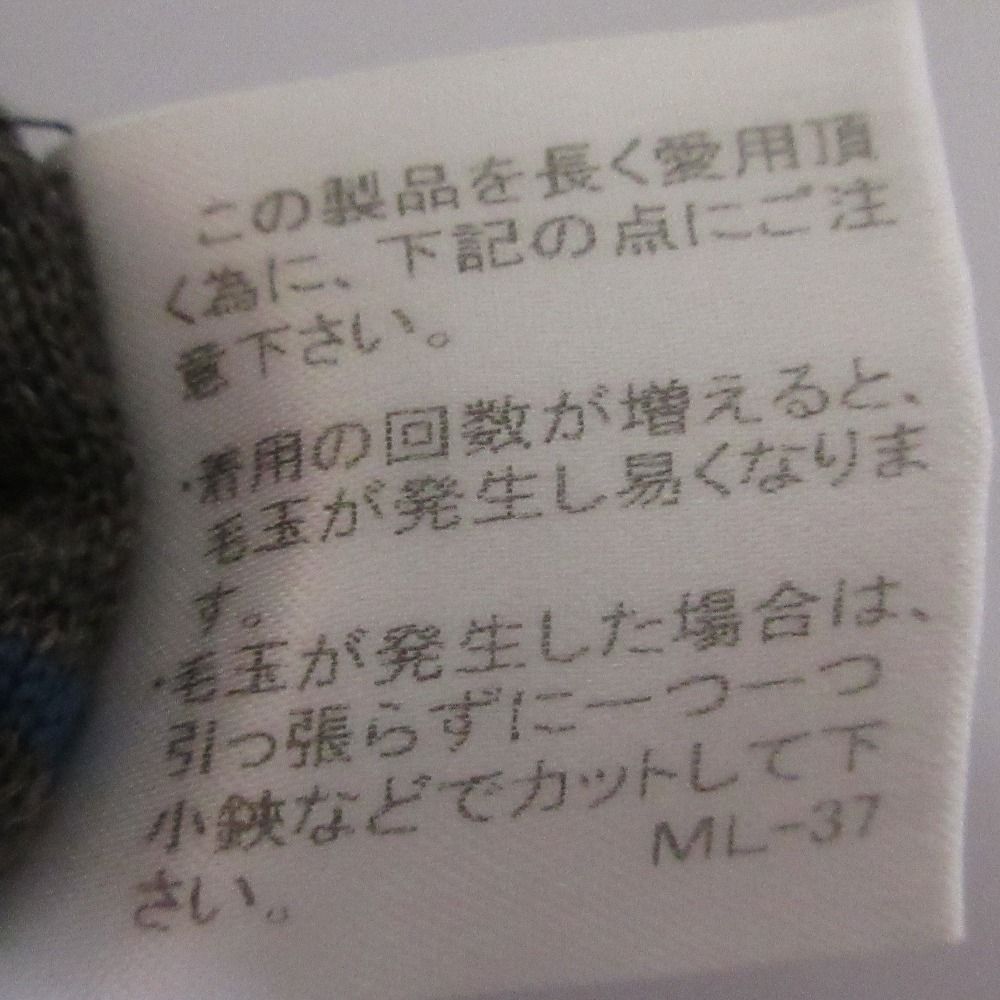 この製品を長く愛用頂
く為に、下記の点にご注
意下さい。
・着用の回数が増えると、
毛玉が発生し易くなりま
す。
・毛玉が発生した場合は、
引っ張らずに一つ一つ
小鋏などでカットして下
さい。
ML-37